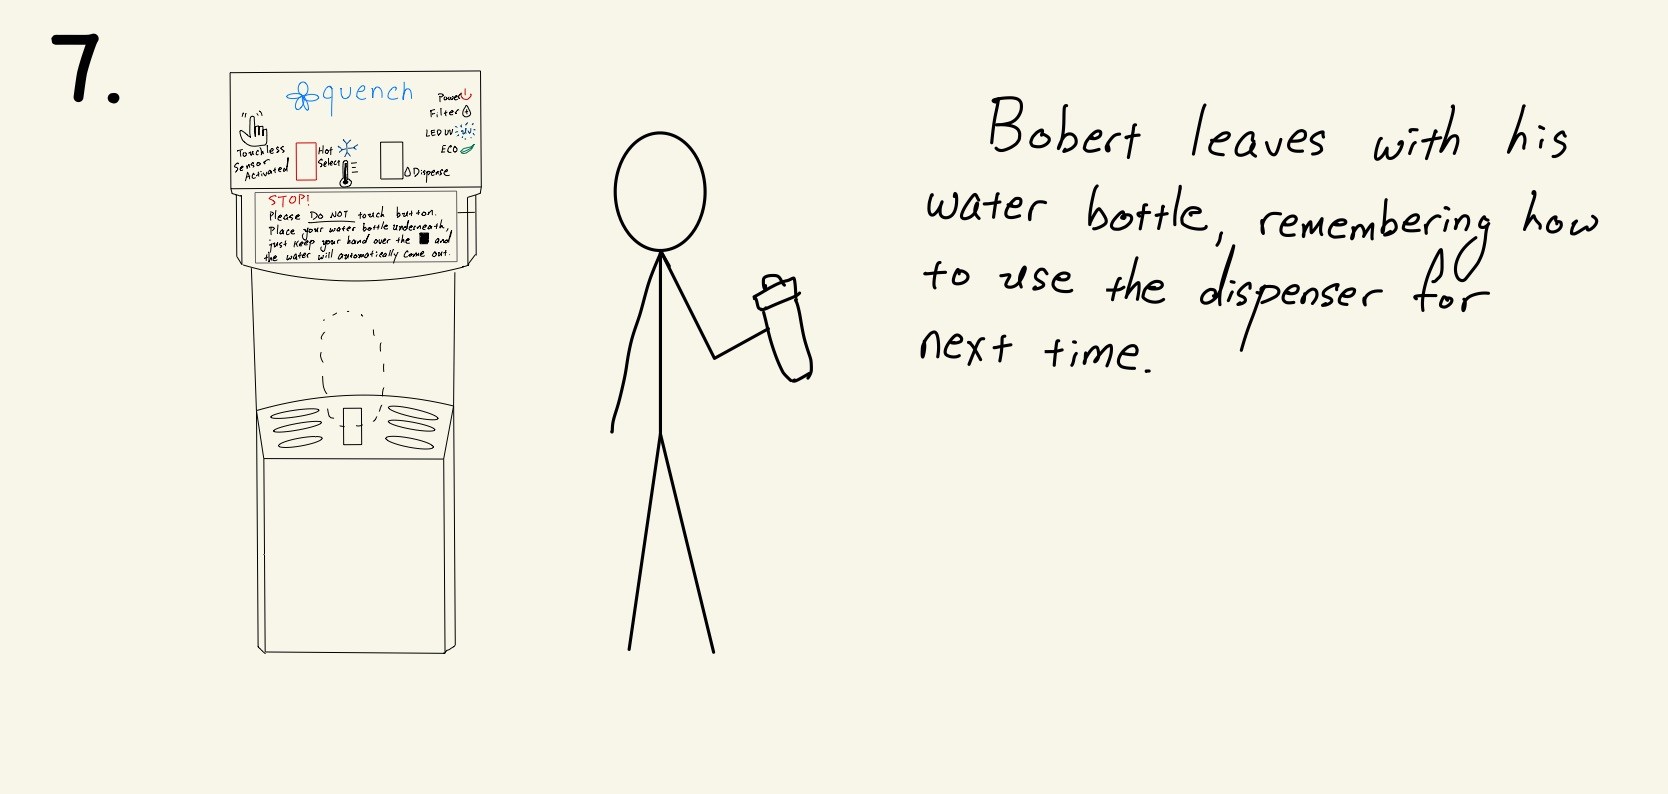 7.
quench
Power
Filter
LED UV UV
ECO
Touchless
Sensor
Activated
Hot
Select
Dispense
STOP!
Please Do NOT touch button.
Place your water bottle underneath,
just keep your hand over the and
the water will automatically come out.
Bobert leaves with his
water bottle, remembering how
to use the dispenser for
next time.